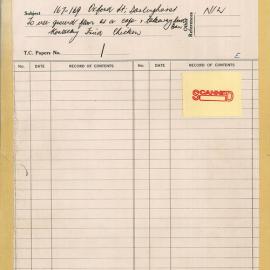 Subject 167-169 Oxford St. Darlinghurst
To use ground floor as a cafe & takeaway food bar
Kentucky Fried Chicken
Other References
N/W
T.C. Papers No. 1
E
No. DATE RECORD OF CONTENTS No. DATE RECORD OF CONTENTS
SCANNED